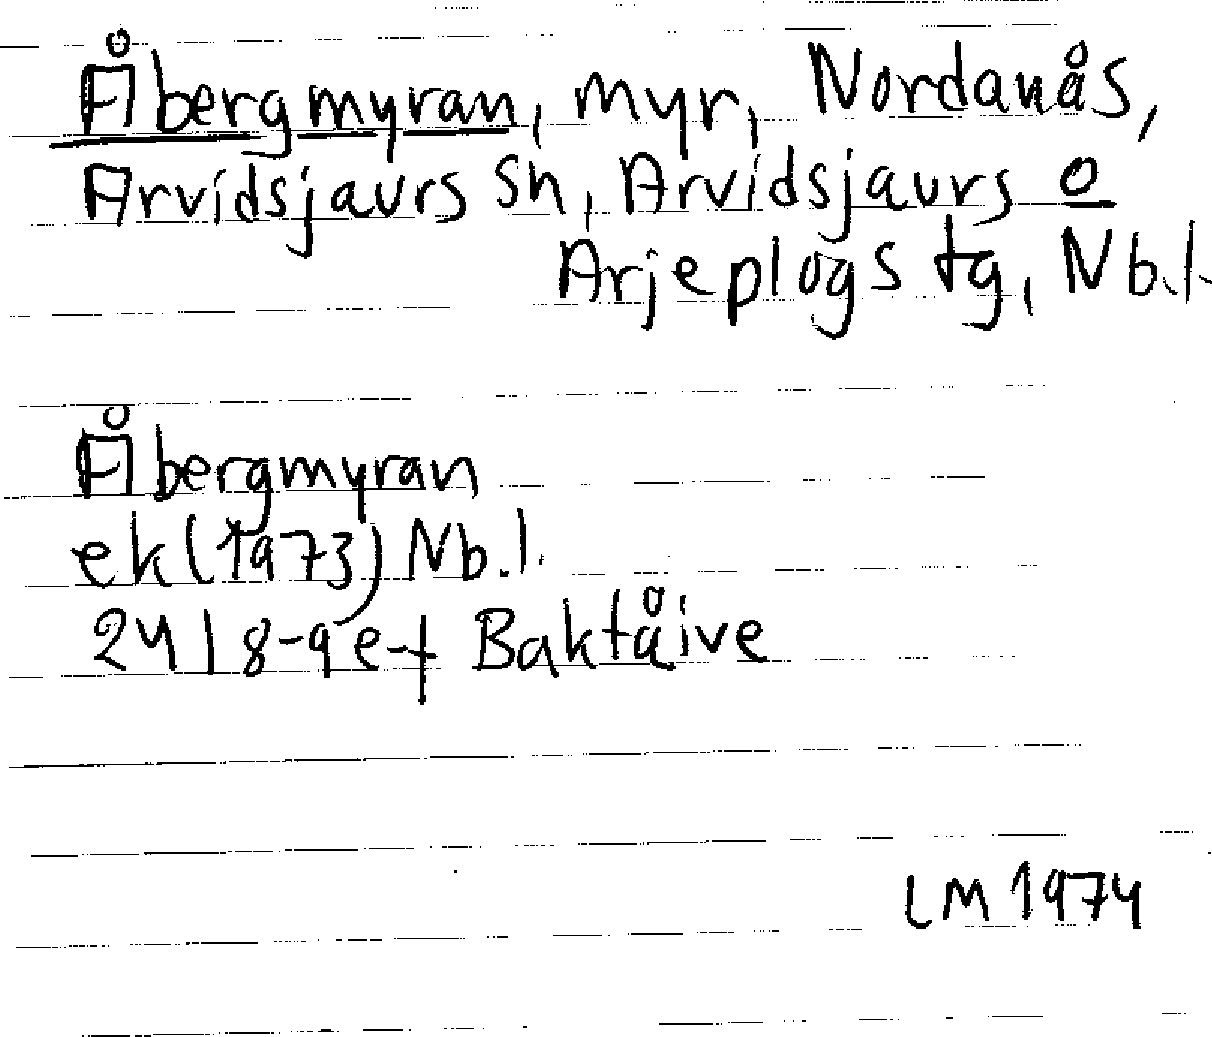 Åbergmyran, myr, Nordanås,
Arvidsjaurs sn, Arvidsjaurs o
Arjeplogs tg, Nb.l.
Åbergmyran
ek (1973) Nb.l.
24 I 8-9 e-f Baktåive
LM 1974